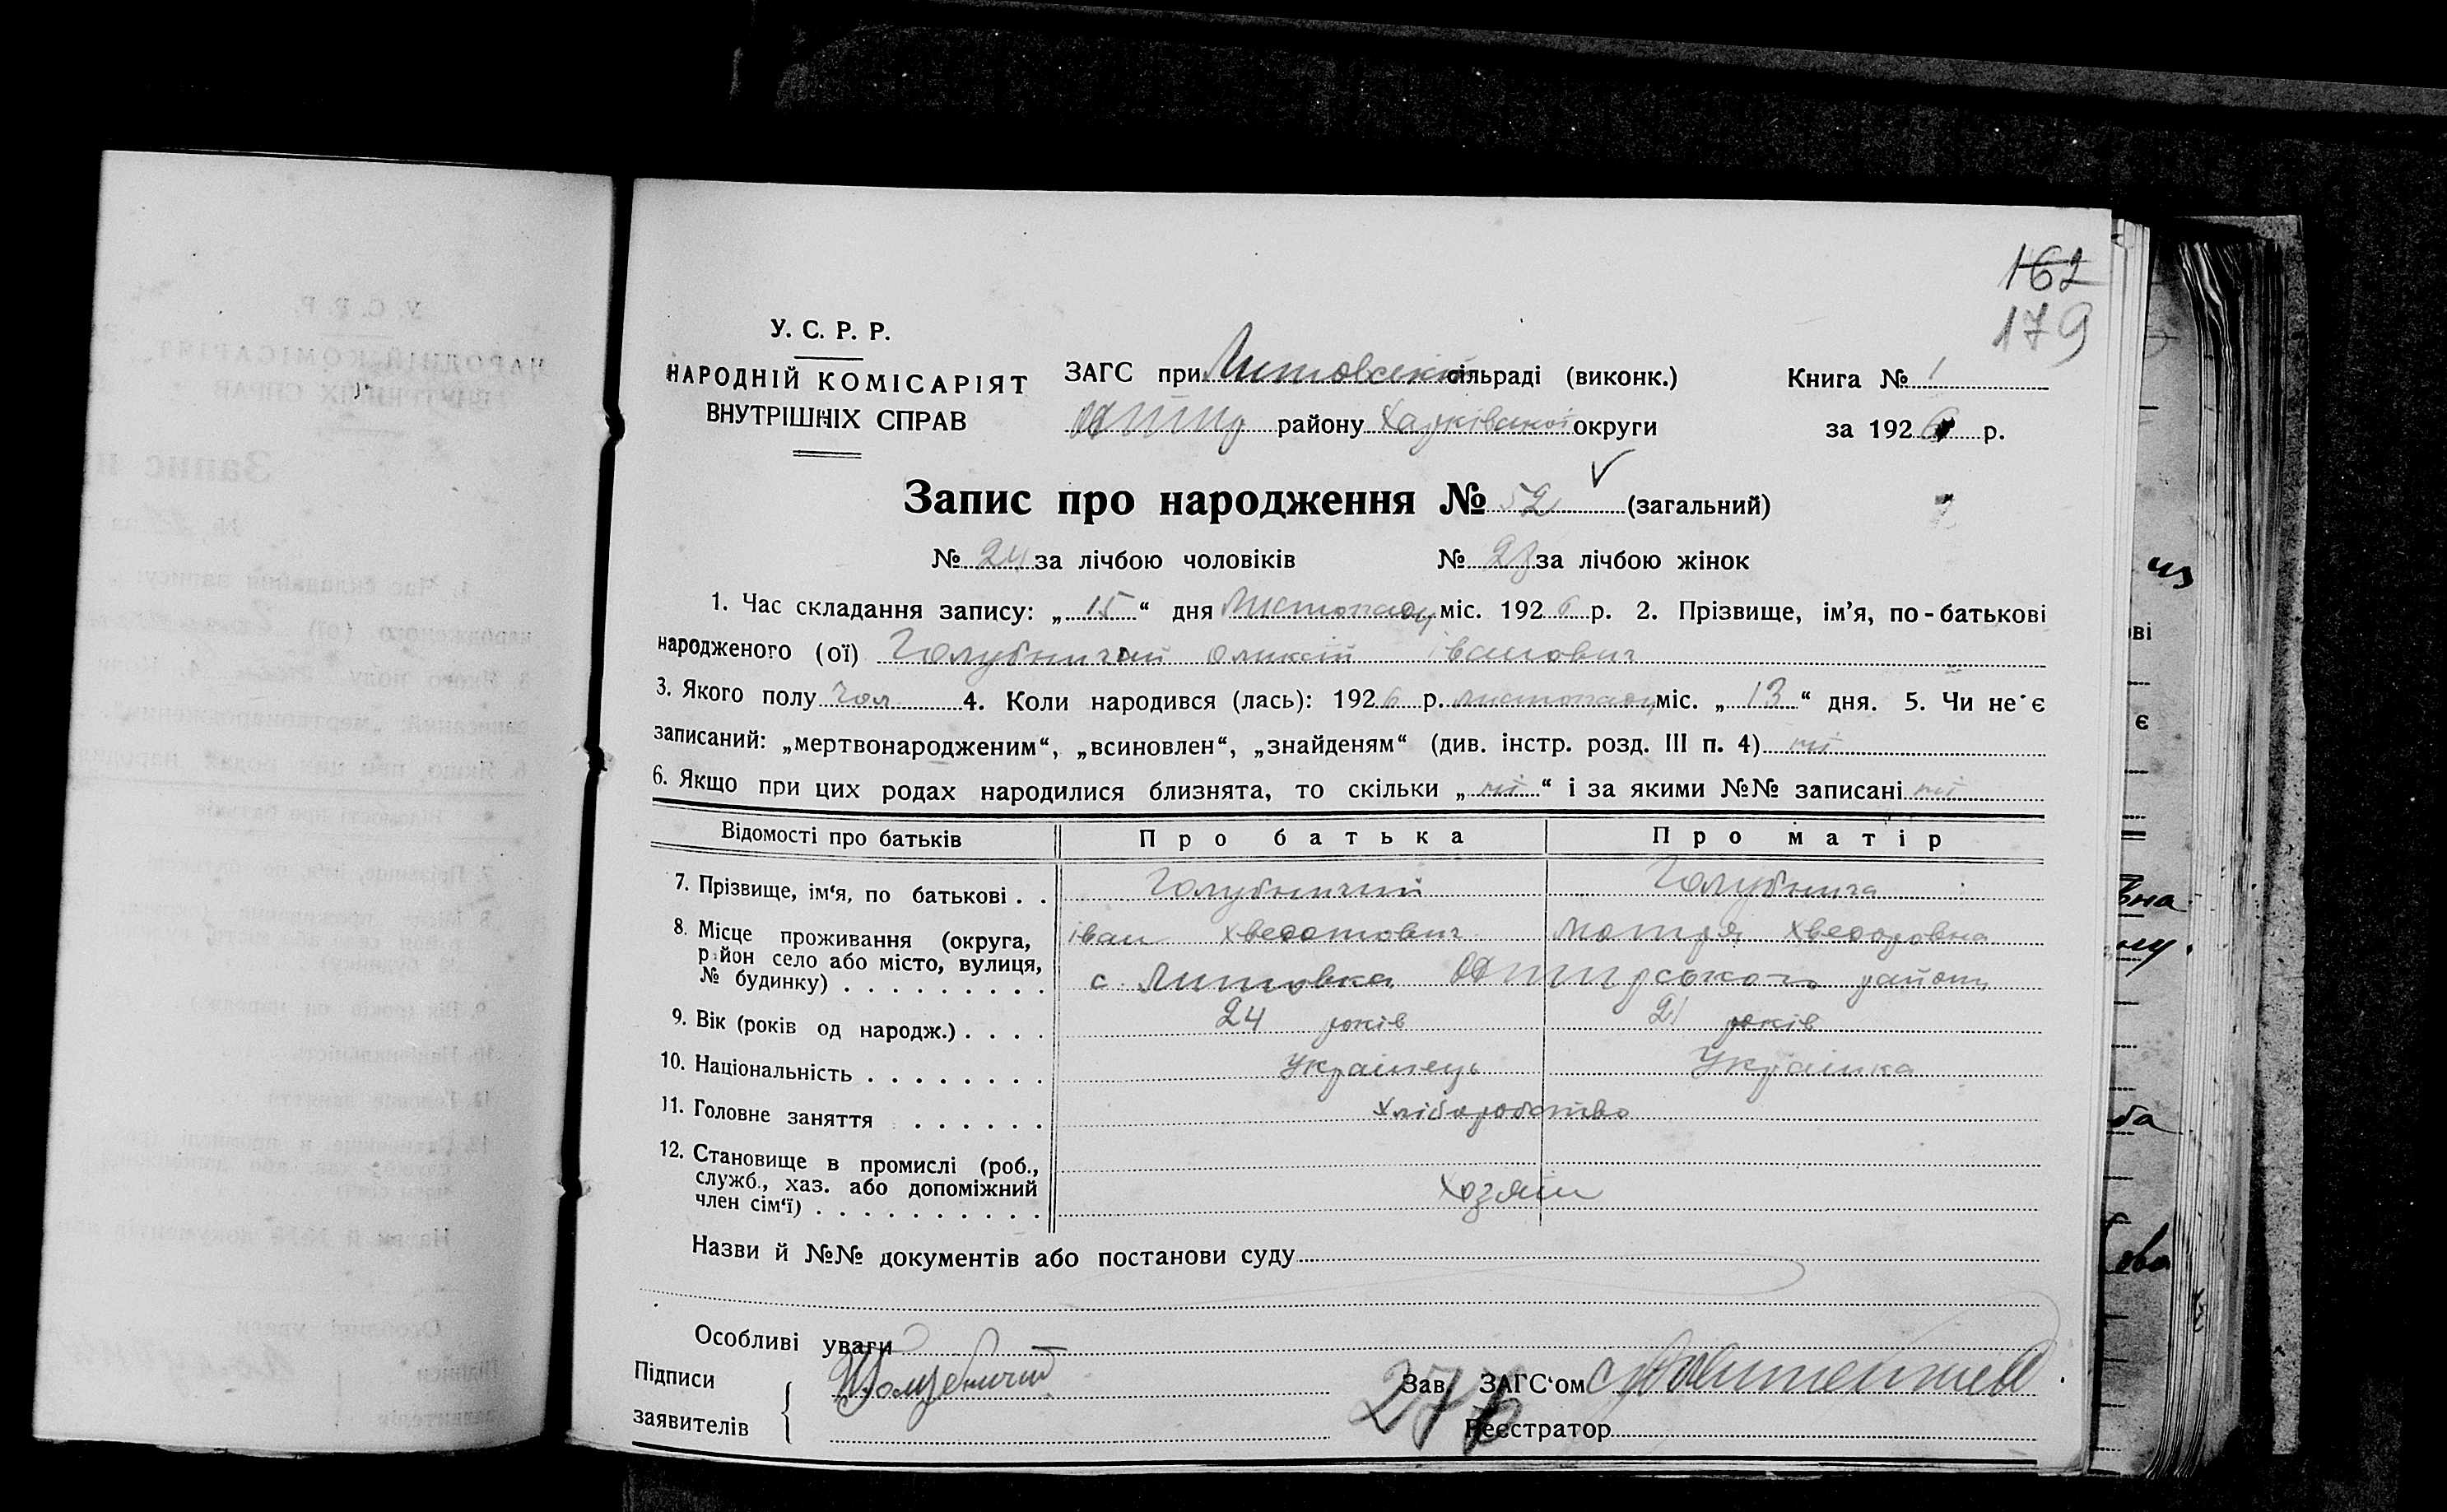 162
179
У. С. Р. Р.
НАРОДНІЙ КОМІСАРІЯТ
ВНУТРІШНІХ СПРАВ
ЗАГС при Литовській сільраді (виконк.)
району Харківської округи
Книга № 1
за 1926 р.
Запис про народження № 52 (загальний)
№ 24 за лічбою чоловіків № 28 за лічбою жінок
1. Час складання запису: „15“ дня Листопаду міс. 1926 р. 2. Прізвище, ім’я, по-батькові
народженого (ої) Голубничий Оликсій Іванович
3. Якого полу Чол. 4. Коли народився (лась): 1926 р. листопаду міс. „13“ дня. 5. Чи не є
записаний: „мертвонародженим“, „всиновлен“, „знайденям“ (див. інстр. розд. III п. 4) ні
6. Якщо при цих родах народилися близнята, то скільки „ні“ і за якими №№ записані ні
Відомості про батьків Про батька Про матір
7. Прізвище, ім‘я, по батькові . . Голубничий Голубнича
8. Місце проживання (округа, Іван Хведотович Мотря Хведоровна
район село або місто, вулиця,
№ будинку) . . . . . . . . . с. Литовка району
9. Вік (років од народж.) . . . . 24 років 21 років
10. Національність . . . . . . . . Українець Українка
11. Головне заняття . . . . . . Хліборобство
12. Становище в промислі (роб.,
служб., хаз. або допоміжний Хозяїн
член сім‘ї) . . . . . . . . . .
Назви й №№ документів або постанови суду
Особливі уваги
Підписи Голубничий
заявителів
Зав. ЗАГС‘ом
276
Реєстратор